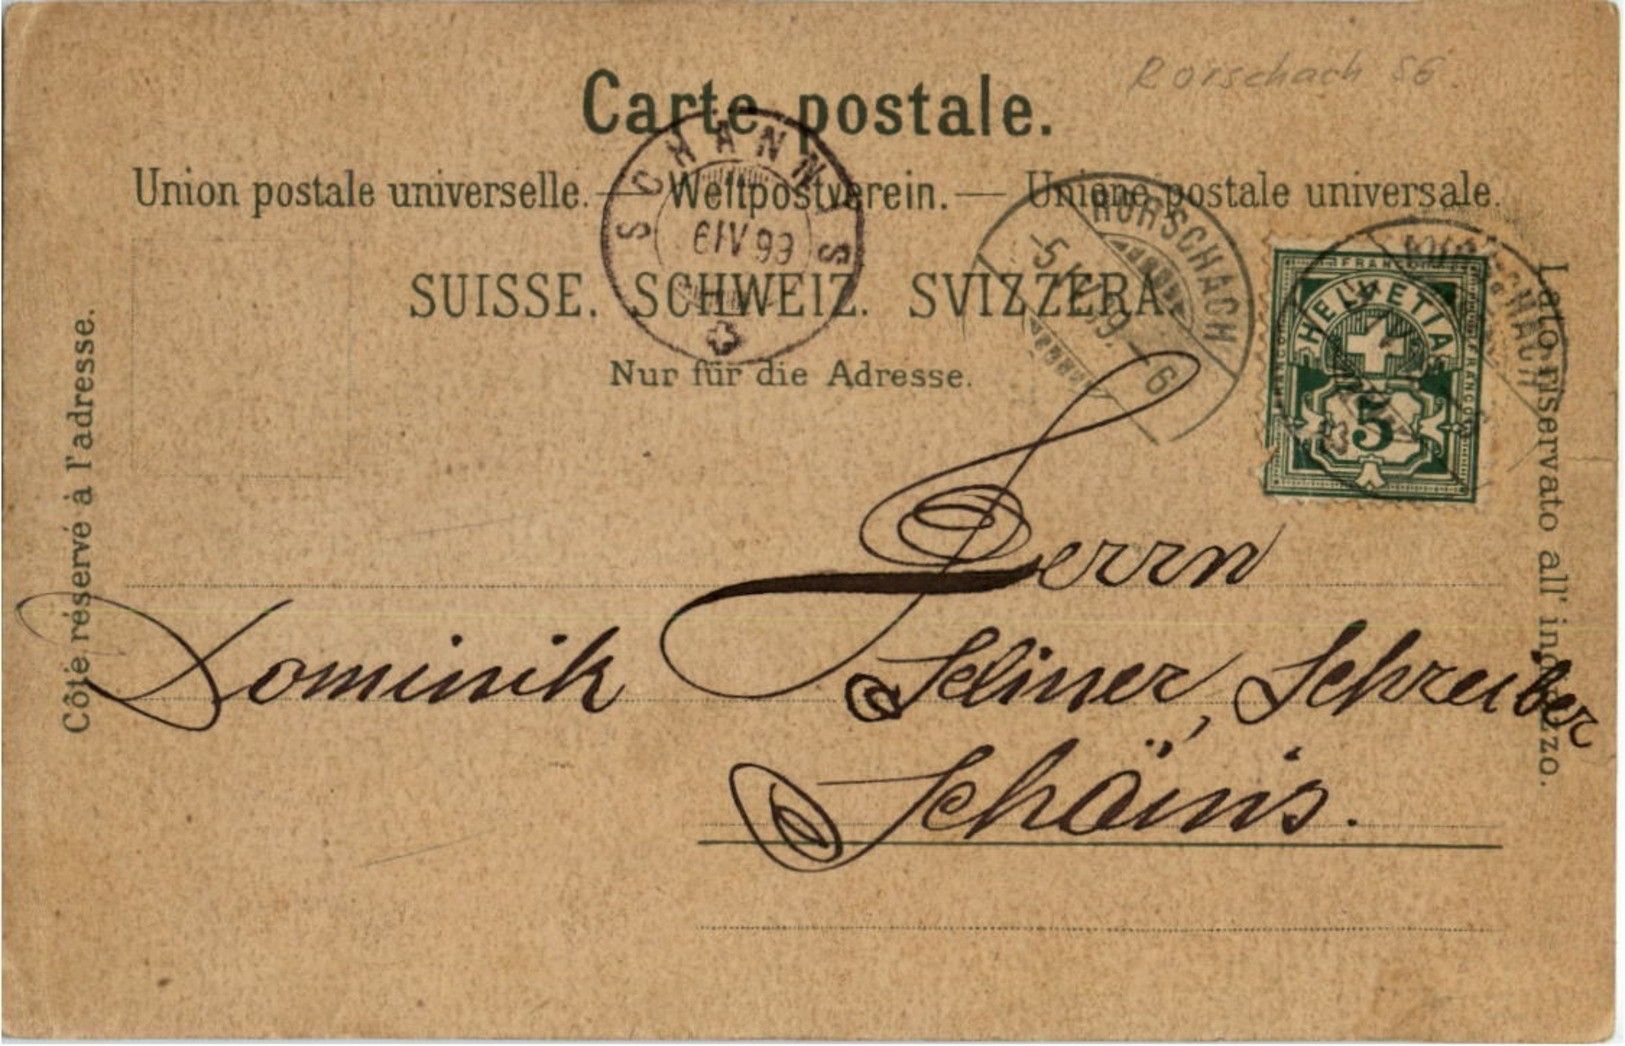 Rorschach SG
Carte postale.
Union postale universelle. — Weltpostverein. — Unione postale universale.
SCHÄNNIS
6 IV 99
RORSCHACH
-5.IV.99.-6
SUISSE. SCHWEIZ. SVIZZERA.
Nur für die Adresse.
FRANCO
HELVETIA
5
RORSCHACH
Côté réservé à l'adresse.
Lato riservato all' indirizzo.
Herrn
Dominik Seliner, Schreiber
Schänis.